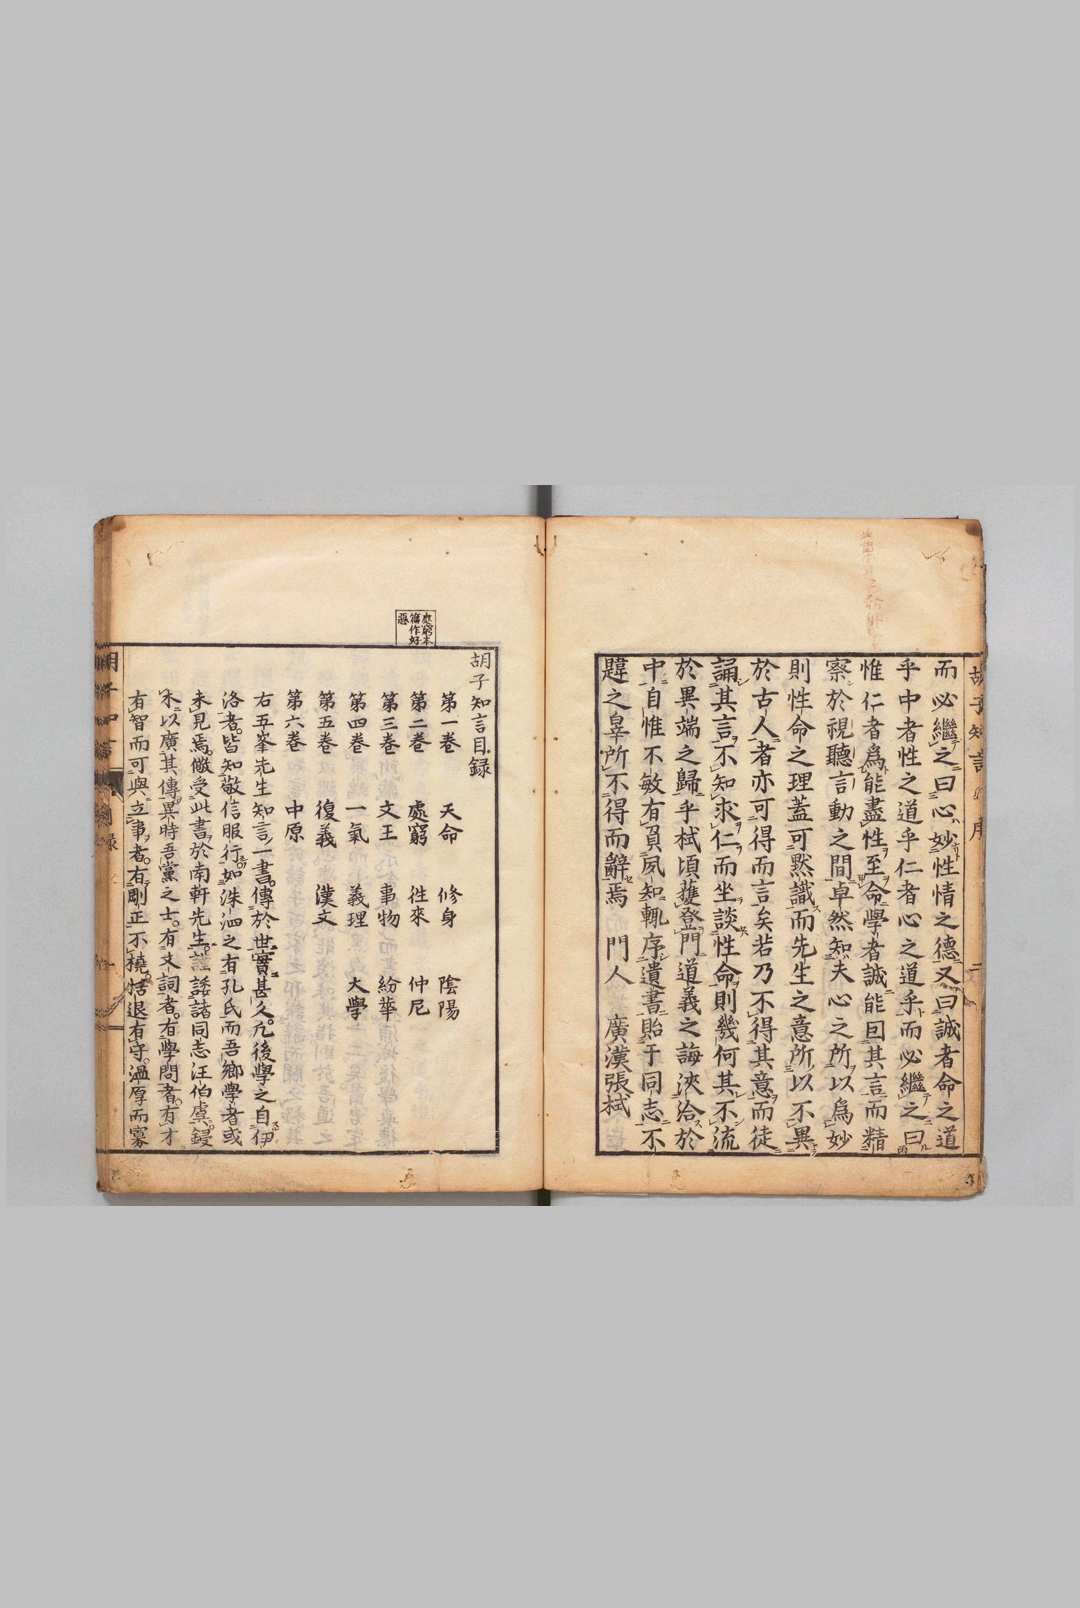 而必繼之曰心妙性情之德又曰誠者命之道
乎中者性之道乎仁者心之道乎而必繼之曰
惟仁者爲能盡性至命學者誠能因其言而精
察於視聽言動之間卓然知夫心之所以爲妙
則性命之理蓋可默識而先生之意所以不異
於古人者亦可得而言矣若乃不得其意而徒
誦其言不知求仁而坐談性命則幾何其不流
於異端之歸乎栻頃獲登門道義之誨浹洽於
中自惟不敏有負夙知輒序遺書貽于同志不
韙之辠所不得而辭焉 門人 廣漢張栻
處窮本
篇作好
惡
胡子知言目録
第一卷 天命 修身 陰陽
第二卷 處窮 徃來 仲尼
第三卷 文王 事物 紛華
第四卷 一氣 義理 大學
第五卷 復義 漢文
第六卷 中原
右五峯先生知言一書傳於世實甚久凢後學之自伊
洛者皆知敬信服行如洙泗之有孔氏而吾鄉學者或
未見焉儆受此書於南軒先生謹諉諸同志汪伯虞鋟
木以廣其傳異時吾黨之士有文詞者有學問者有才
有智而可與立事者有剛正不撓恬退有守溫厚而寡